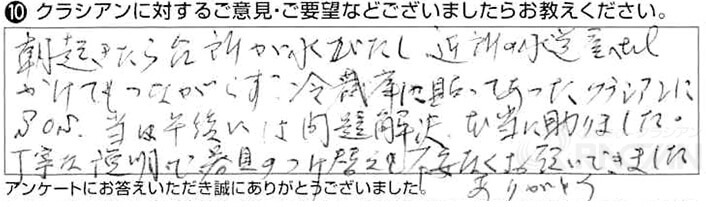 ⑩ クラシアンに対するご意見・ご要望などございましたらお教えください。
朝起きたら台所が水びたし 近所の水道屋へtel
かけてもつながらず、冷蔵庫に貼ってあったクラシアンに
SOS. 当日午後には問題解決、本当に助りました。
丁寧な説明で器具のつけ替えも不安なくお願いできました
ありがとう
アンケートにお答えいただき誠にありがとうございました。